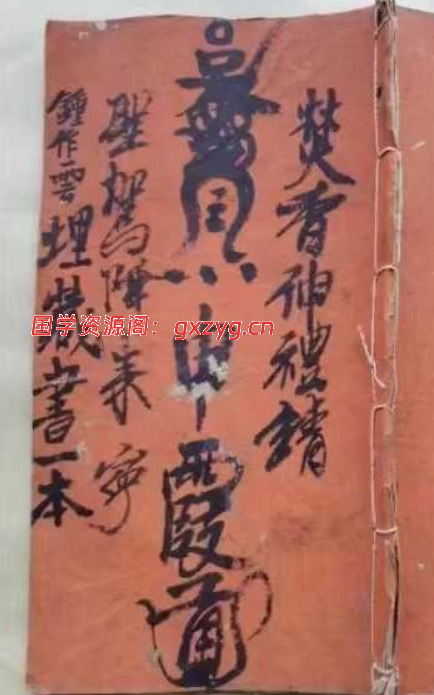 焚香神禮請
聖駕降來寧
鍾作雲埋藏書一本
国学资源阁：gxzyg.cn